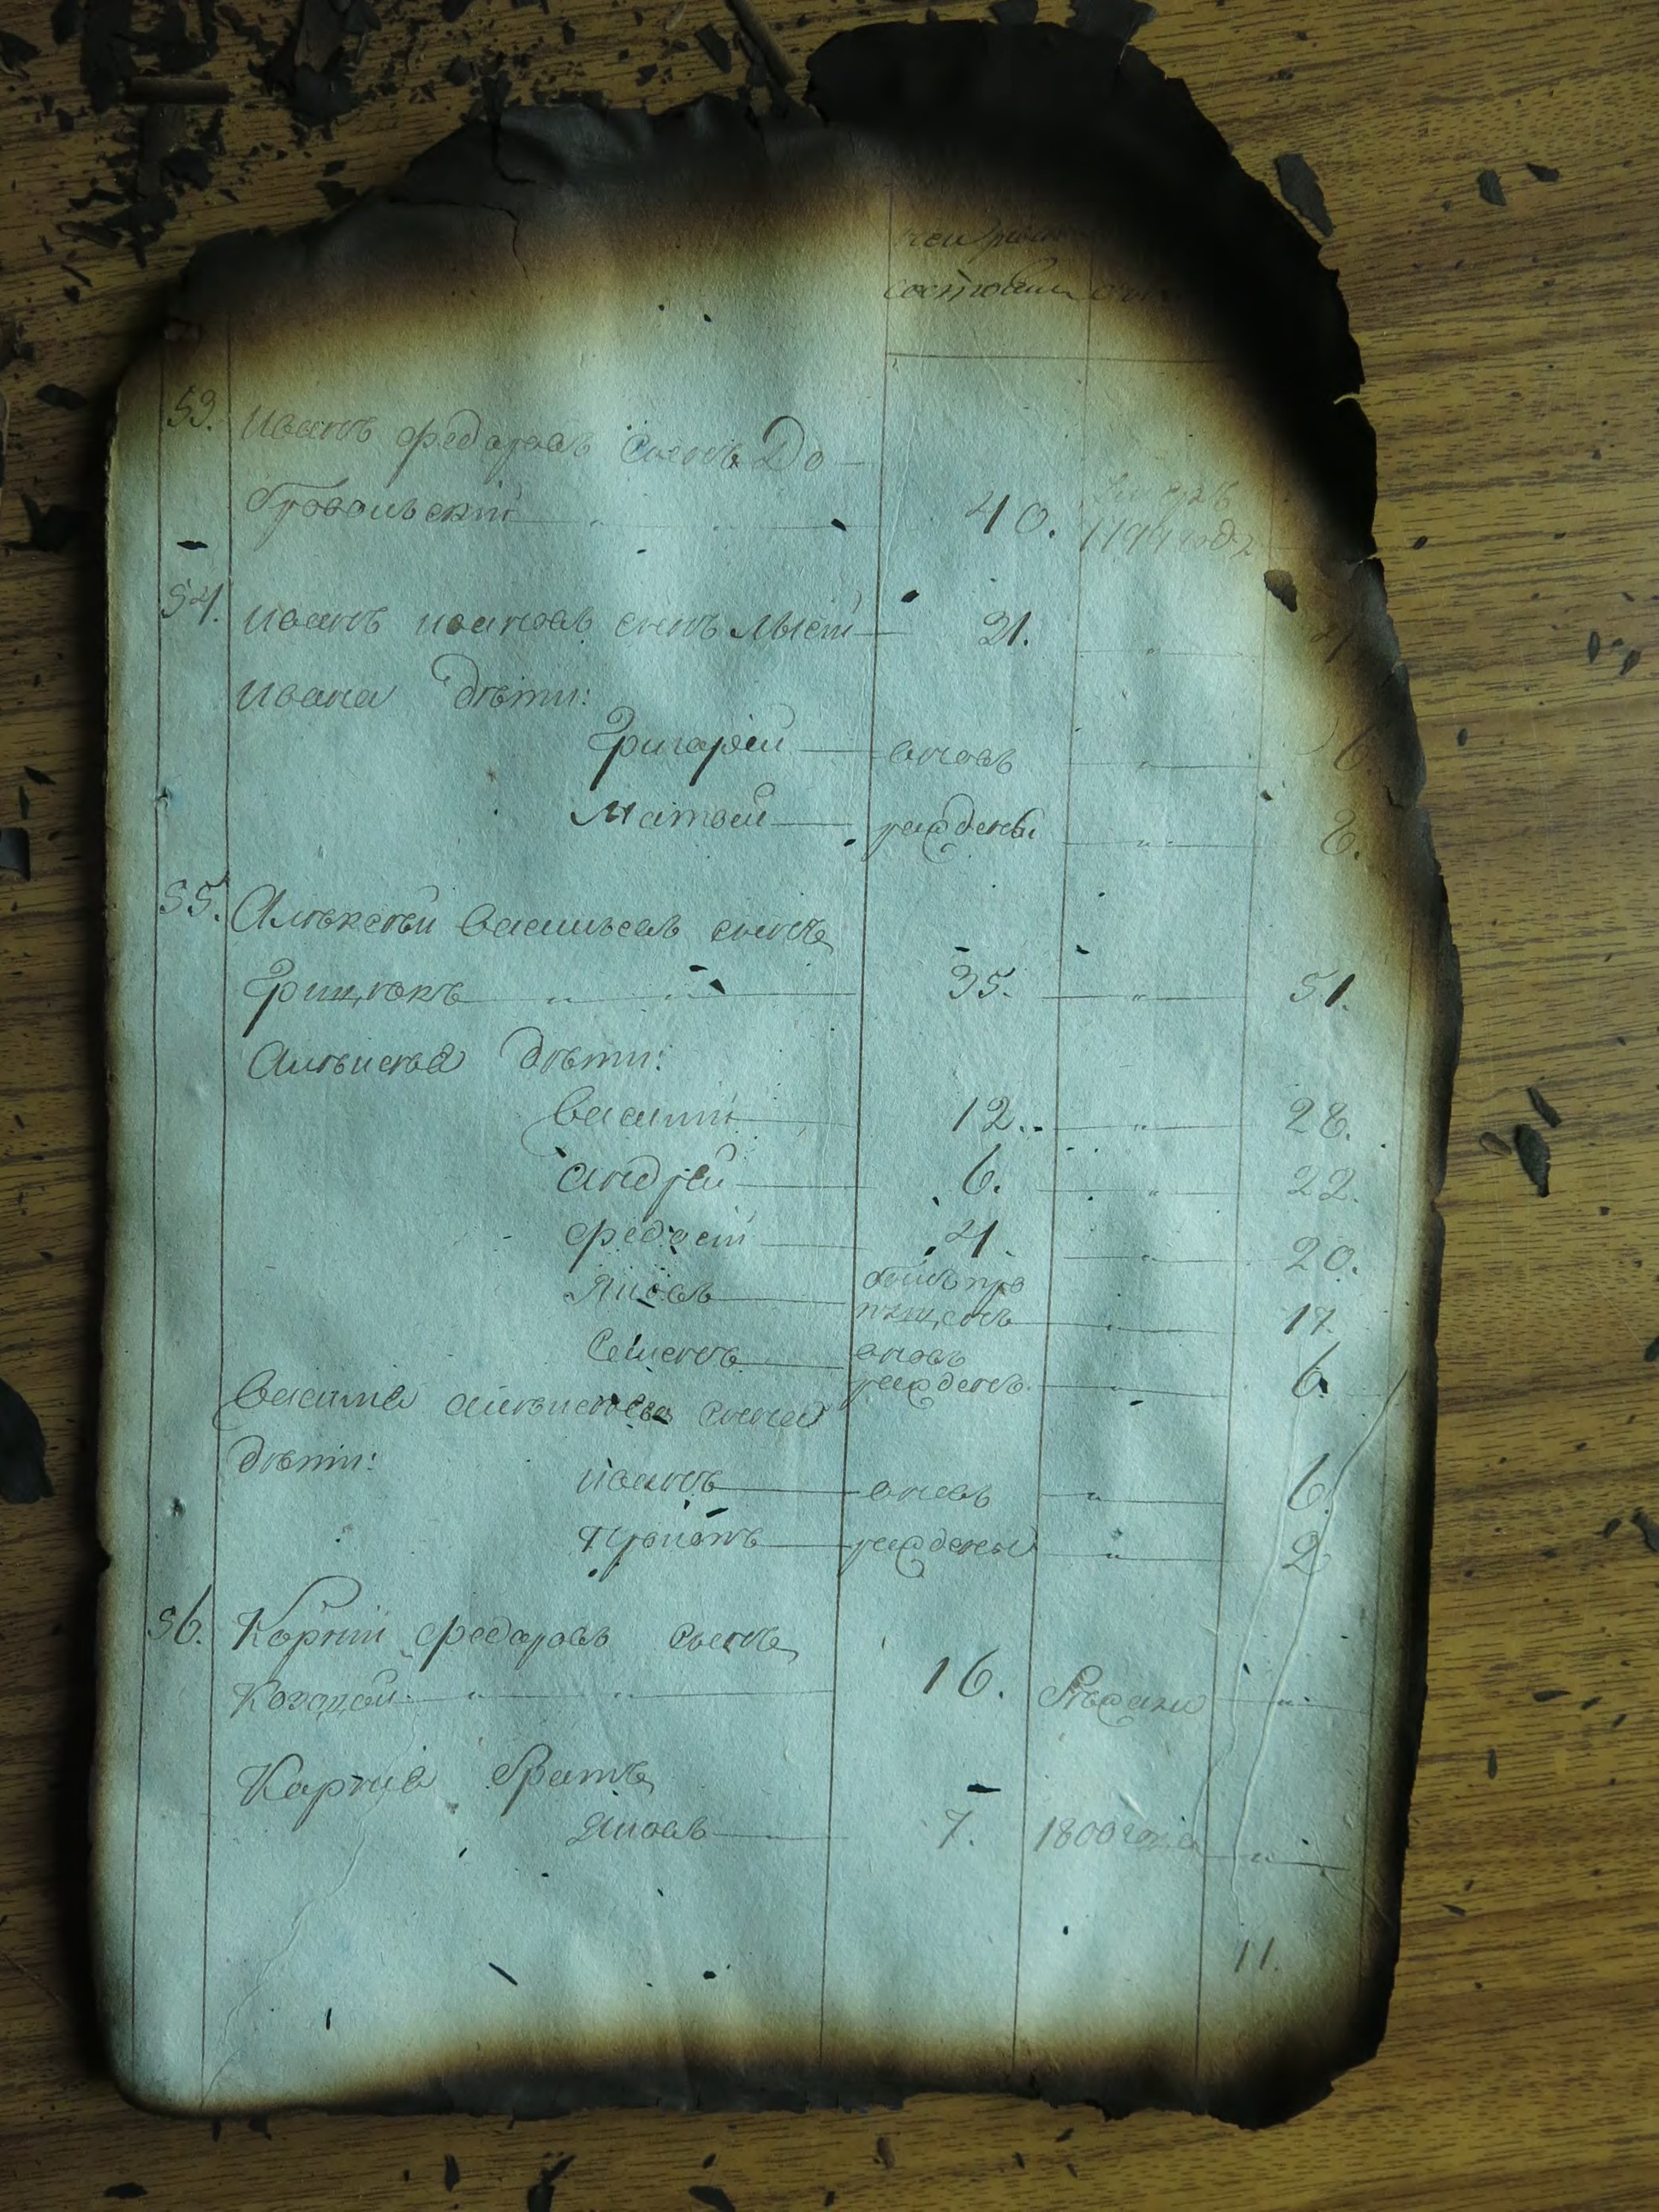 состояли
53. Иванъ Федоровъ сынъ До-
бровольскій 40. 1799 году
54. Иванъ Ивановъ сынъ Лысій 21.
Ивана дѣти:
Григорій вновь 6.
Матвей рождены 2.
55. Алѣксѣй Васильевъ сынъ
Грищѣкъ 35. 51.
Алѣксѣя дѣти:
Василій 12. 28.
Андрей 6. 22.
Федосій 4. 20.
Яковъ былъ про
пущенъ 17.
Семенъ вновь
рожденъ 6.
Василія Алѣксѣева сына
дѣти:
Иванъ вновь 6.
Игнатъ рождены 2
56. Корній Федоровъ сынъ
16. Сведены
Корнія братъ
Яковъ 7. 1800 года
11.